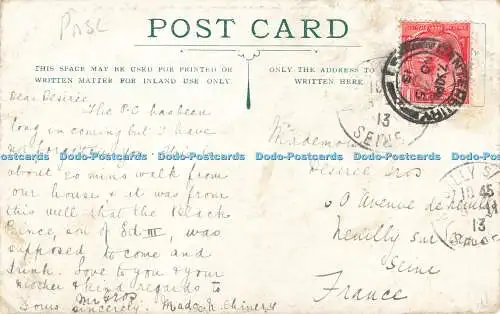 POST CARD
THIS SPACE MAY BE USED FOR PRINTED OR
WRITTEN MATTER FOR INLAND USE ONLY.
ONLY THE ADDRESS TO
WRITTEN HERE.
Dear Desirée
The P.C has been
long in coming but I have
about 20 mins walk from
our house & it was from
this well that the Black
Prince, son of Ed III, was
supposed to come and
drink. Love to you & your
Mother & kind regards to
Mr Gros
Yours sincerely.
Mademoi
Desirée Gros
60 Avenue de Neuilly
Neuilly sur
Seine
France
CANTERBURY
13
SEINE
10 45
13
Postcards www.postcards Postcards www.postcards Postcards